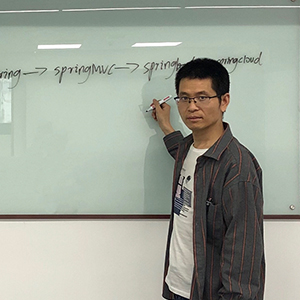 ring → springMVC → spring springcloud